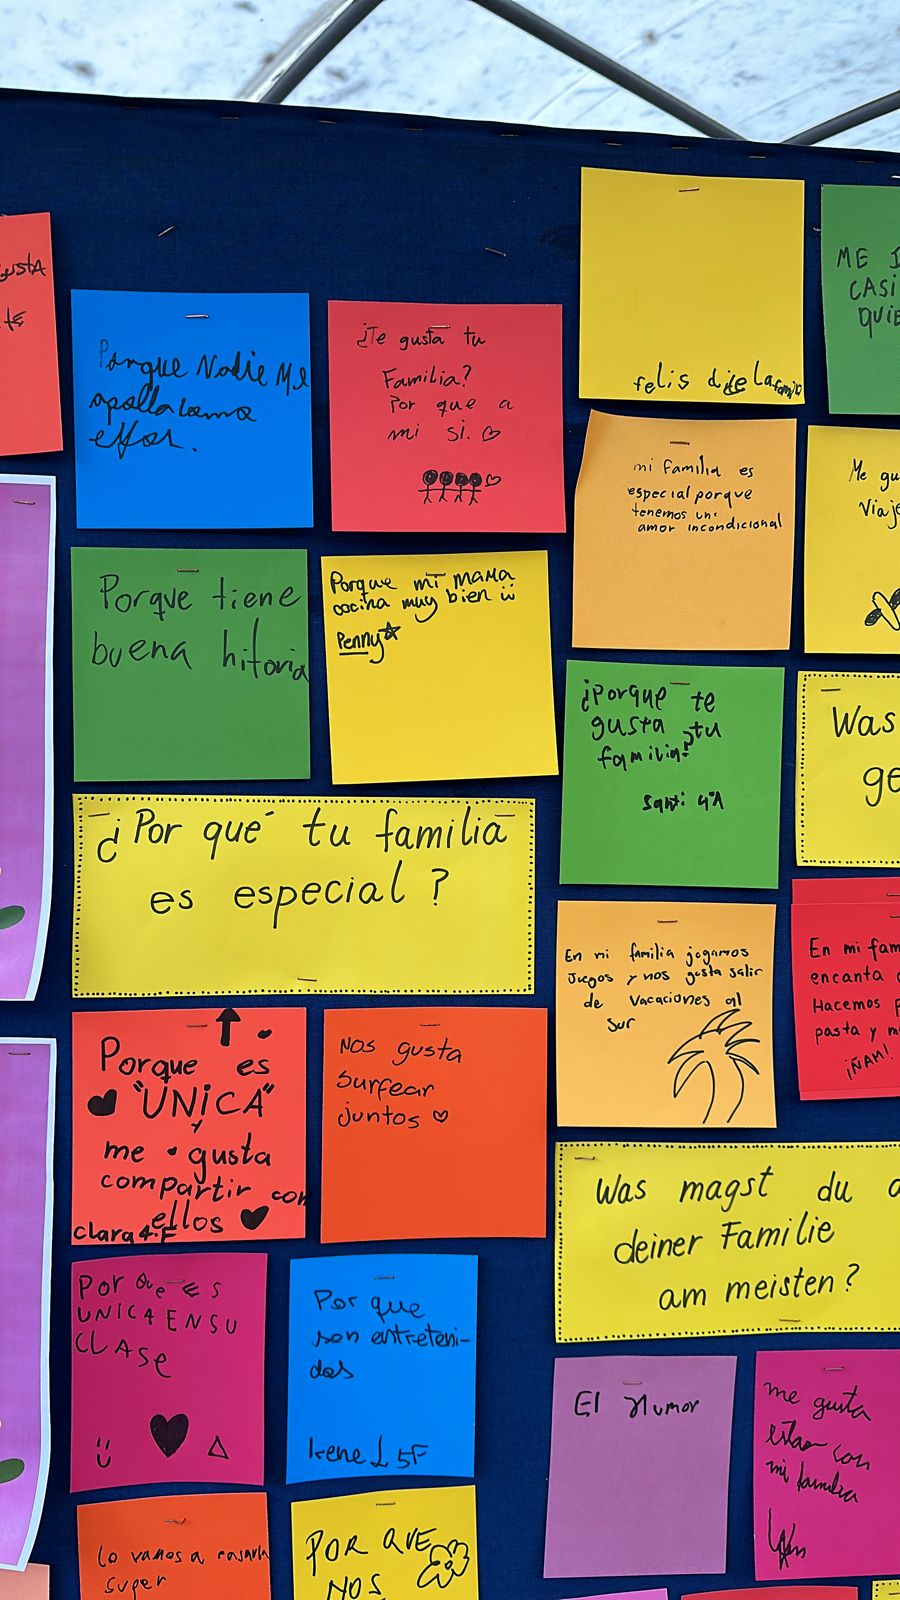 GustA
Porque Nadie Me
apolla como
ellos.
¿Te gusta tu
Familia?
Por que a
mi si.
felis dice La familia
ME
CASI
QUIE
mi familia es
especial porque
tenemos un
amor incondicional
Me gu
Viaje
Porque tiene
buena hitoria
Porque mi mama
cocina muy bien
Penny
¿Porque te
gusta tu
familia?
Santi 4ºA
Was
ge
¿Por qué tu familia
es especial?
En mi familia jugamos
Juegos y nos gusta salir
de vacaciones al
sur
En mi fam
encanta
Hacemos p
pasta y m
¡ÑAM!
Porque es
"UNiCA"
y
me gusta
compartir con
ellos
clara 4.F
Nos gusta
surfear
juntos
Was magst du a
deiner Familie
am meisten?
POR QUe ES
UNICA EN SU
CLASe
Por que
son entreteni-
dos
Irene L 5F
El Humor
me gusta
estar con
mi familia
Lo vamos a
super
POR QUE
NOS